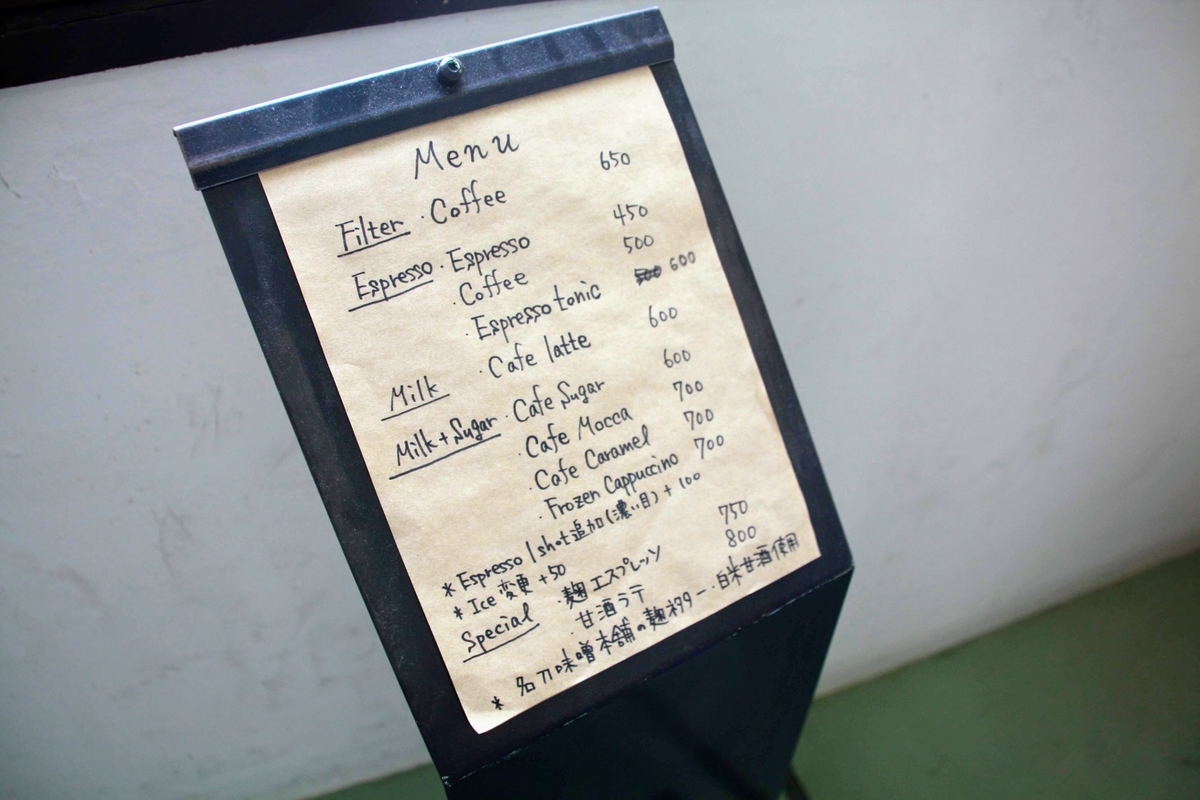 Menu
Filter ・Coffee 650
Espresso ・Espresso 450
・Coffee 500
・Espresso tonic 600
Milk ・Cafe latte 600
Milk+Sugar ・Cafe Sugar 600
・Cafe Mocca 700
・Cafe Caramel 700
・Frozen Cappuccino 700
* Espresso 1shot追加(濃い目)+100
* Ice 変更 +50
Special ・麹エスプレッソ 750
・甘酒ラテ 800
* 名刀味噌本舗の麹ネクター・白米甘酒使用